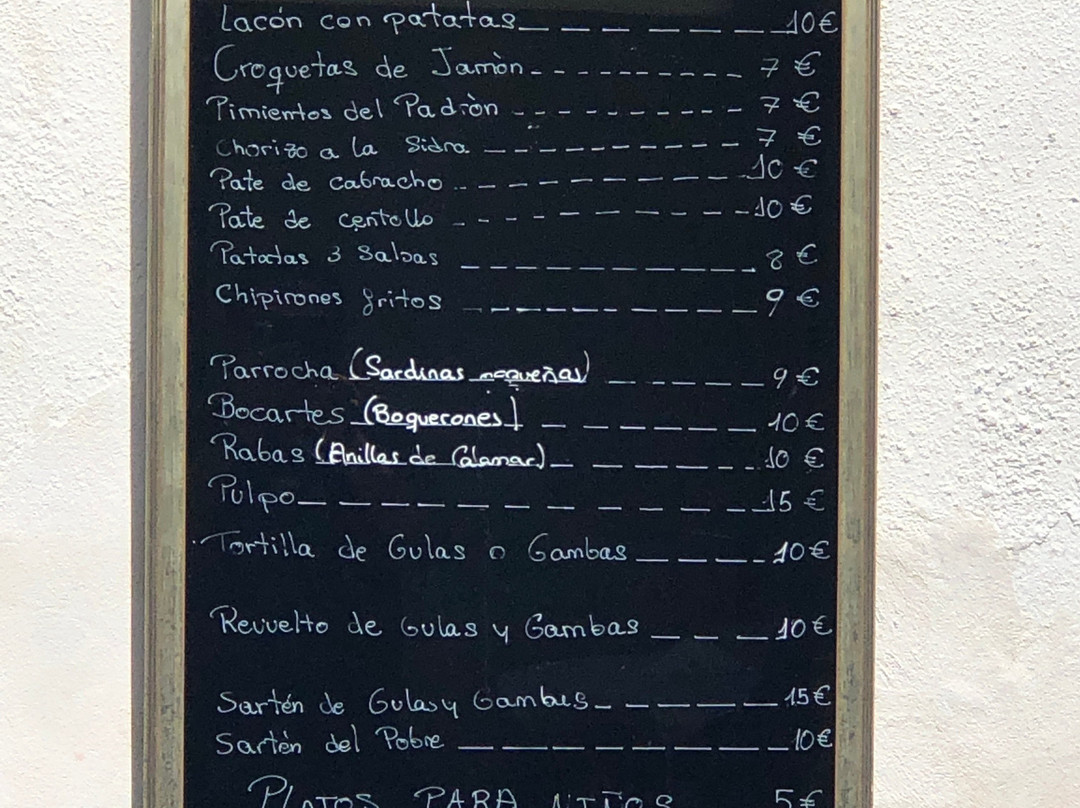 Lacón con patatas_ _ _ _ _ _ _ 10€
Croquetas de Jamòn----------- 7 €
Pimientos del Padròn ---------- 7 €
Chorizo a la Sidra ----------- 7 €
Pate de cabracho ----------- 10 €
Pate de centollo ---------- 10 €
Patatas 3 Salsas __________ 8 €
Chipirones fritos __________ 9 €
Parrocha (Sardinas pequeñas) ______ 9 €
Bocartes (Boquerones) ______ 10 €
Rabas (Anillas de Calamar) ______ 10 €
Pulpo___________ 15 €
Tortilla de Gulas o Gambas ____ 10€
Revuelto de Gulas y Gambas ___ 10€
Sartén de Gulas y Gambas _____ 15€
Sartén del Pobre ________ 10€
PLATOS PARA NIÑOS 5€